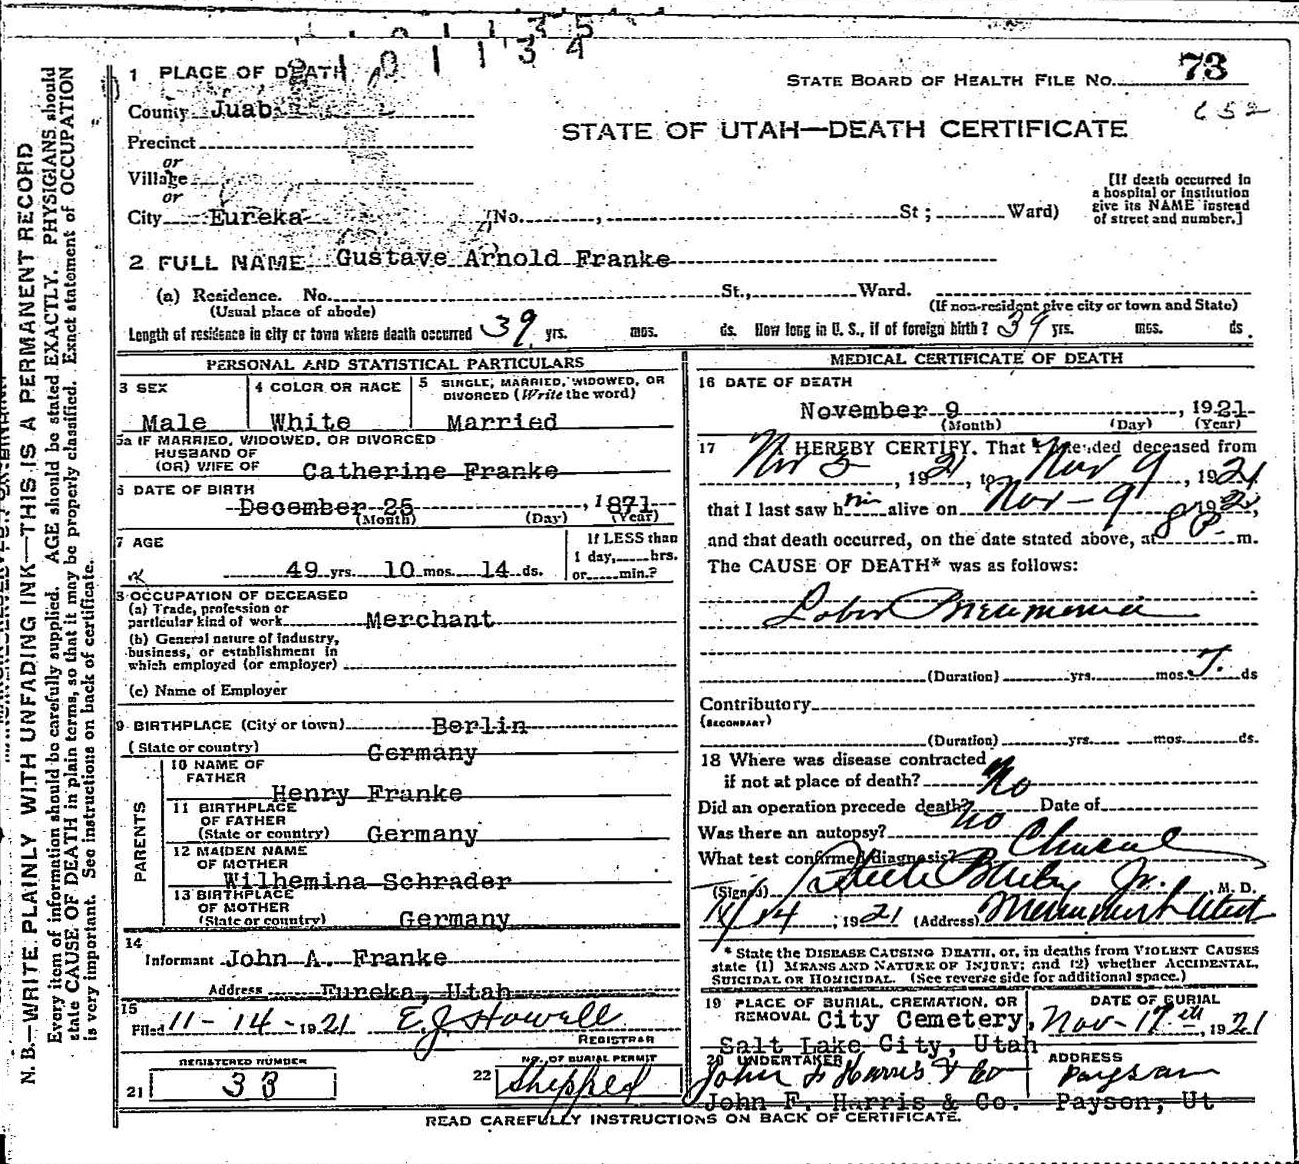 1 PLACE OF DEATH
STATE BOARD OF HEALTH FILE NO. 73
652
County Juab
STATE OF UTAH—DEATH CERTIFICATE
Precinct
or
Village
or
City Eureka (No. , St ; Ward)
[If death occurred in
a hospital or institution
give its NAME instead
of street and number.]
2 FULL NAME Gustave Arnold Franke
(a) Residence. No. St., Ward.
(Usual place of abode) (If non-resident give city or town and State)
Length of residence in city or town where death occurred 39 yrs. mos. ds. How long in U. S., if of foreign birth? 39 yrs. mos. ds.
PERSONAL AND STATISTICAL PARTICULARS
3 SEX
Male
4 COLOR OR RACE
White
5 SINGLE, MARRIED, WIDOWED, OR
DIVORCED (Write the word)
Married
5a IF MARRIED, WIDOWED, OR DIVORCED
HUSBAND OF
(OR) WIFE OF Catherine Franke
6 DATE OF BIRTH
December 25, 1871
(Month) (Day) (Year)
7 AGE
49 yrs. 10 mos. 14 ds.
If LESS than
1 day, hrs.
or min.?
8 OCCUPATION OF DECEASED
(a) Trade, profession or
particular kind of work Merchant
(b) General nature of industry,
business, or establishment in
which employed (or employer)
(c) Name of Employer
9 BIRTHPLACE (City or town) Berlin
(State or country) Germany
PARENTS
10 NAME OF
FATHER
Henry Franke
11 BIRTHPLACE
OF FATHER
(State or country) Germany
12 MAIDEN NAME
OF MOTHER
Wilhemina Schrader
13 BIRTHPLACE
OF MOTHER
(State or country) Germany
14
Informant John A. Franke
Address Eureka, Utah
15
Filed 11-14-1921 E.J. Howell
REGISTRAR
REGISTERED NUMBER
21 33
NO. OF BURIAL PERMIT
22 Shipped
MEDICAL CERTIFICATE OF DEATH
16 DATE OF DEATH
November 9, 1921
(Month) (Day) (Year)
17 I HEREBY CERTIFY. That I attended deceased from
Nov 3, 1921, to Nov 9, 1921
that I last saw him alive on Nov-9 192
and that death occurred, on the date stated above, at 8 P. m.
The CAUSE OF DEATH* was as follows:
Lobar Pneumonia
(Duration) yrs. mos. 7. ds
Contributory
(SECONDARY)
(Duration) yrs. mos. ds.
18 Where was disease contracted
if not at place of death? No
Did an operation precede death? no Date of
Was there an autopsy?
What test confirmed diagnosis? Clinical
(Signed) Steele Bailey Jr. M. D.
11/14, 1921 (Address) Mammoth Utah
* State the DISEASE CAUSING DEATH, or, in deaths from VIOLENT CAUSES
state (1) MEANS AND NATURE OF INJURY; and (2) whether ACCIDENTAL,
SUICIDAL OR HOMICIDAL. (See reverse side for additional space.)
19 PLACE OF BURIAL, CREMATION, OR
REMOVAL City Cemetery,
Salt Lake City, Utah
DATE OF BURIAL
Nov-17th, 1921
20 UNDERTAKER
John F Harris & Co
John F. Harris & Co.
ADDRESS
Payson
Payson, Ut
READ CAREFULLY INSTRUCTIONS ON BACK OF CERTIFICATE.
N. B.—WRITE PLAINLY WITH UNFADING INK—THIS IS A PERMANENT RECORD
Every item of information should be carefully supplied. AGE should be stated EXACTLY. PHYSICIANS should
state CAUSE OF DEATH in plain terms, so that it may be properly classified. Exact statement of OCCUPATION
is very important. See instructions on back of certificate.